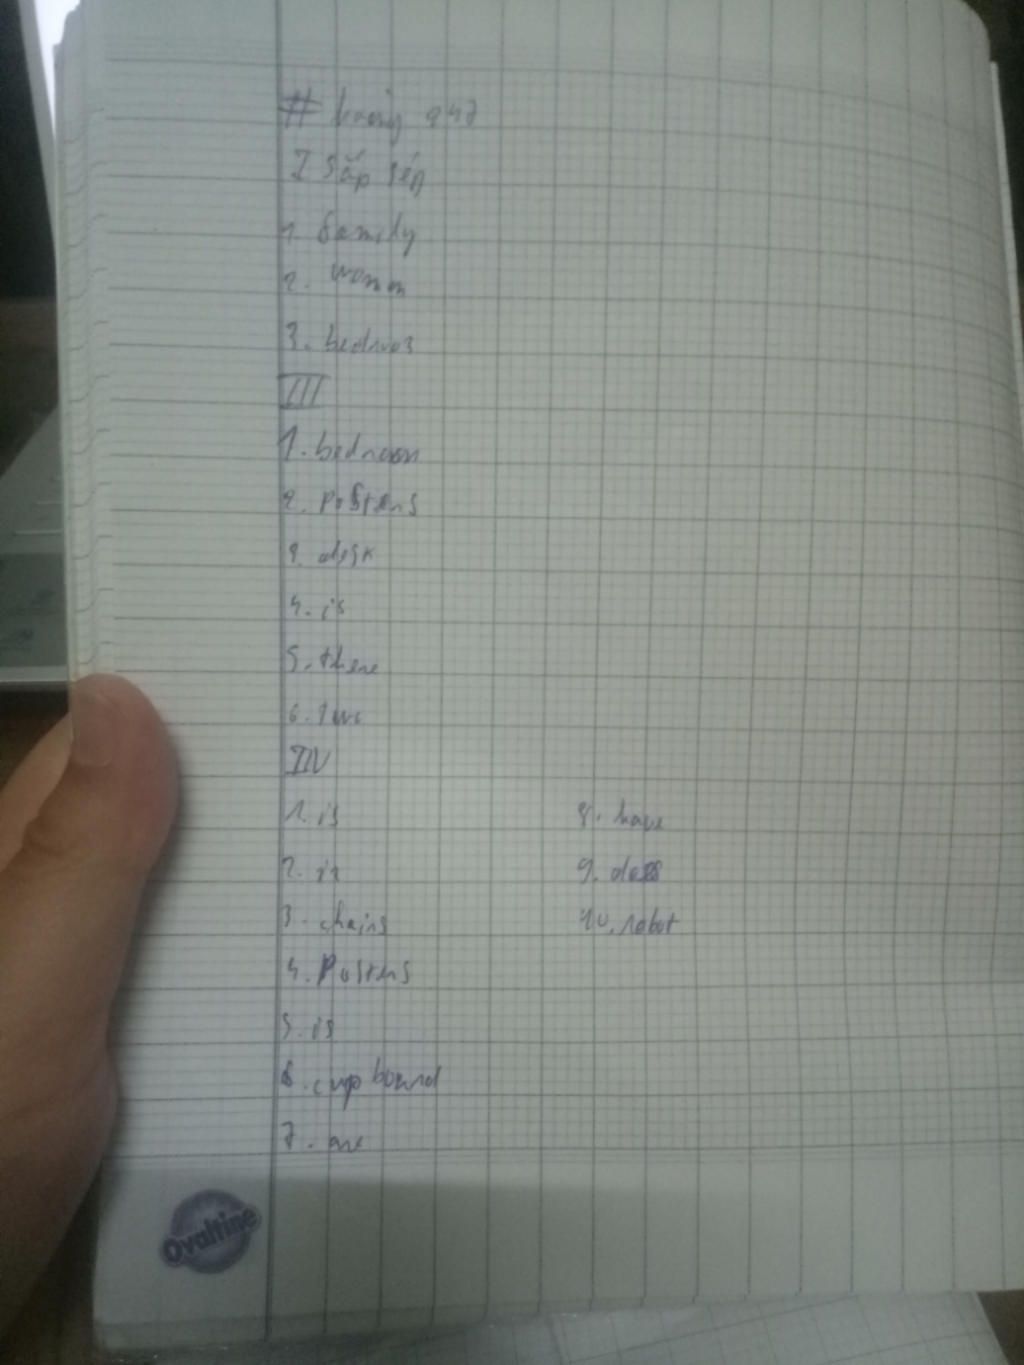 I sắp sếp
1. family
2. womm
3. bedroos
III
1. bedroom
2. posters
desk
4. is
5. there
6.
IIV
1. is
2. is
3. chairs
4. Posters
5. is
6. cupboard
7. are
8. have
9. does
10. robot
Ovaltine